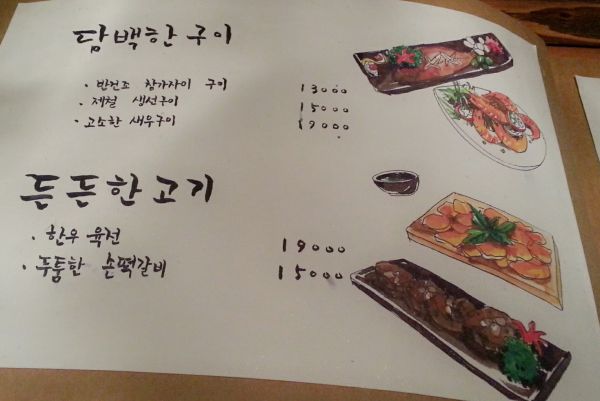 담백한 구이
· 반건조 참가자미 구이 13000
· 제철 생선구이 15000
· 고소한 새우구이 19000
든든한 고기
· 한우 육전 19000
· 두툼한 손떡갈비 15000